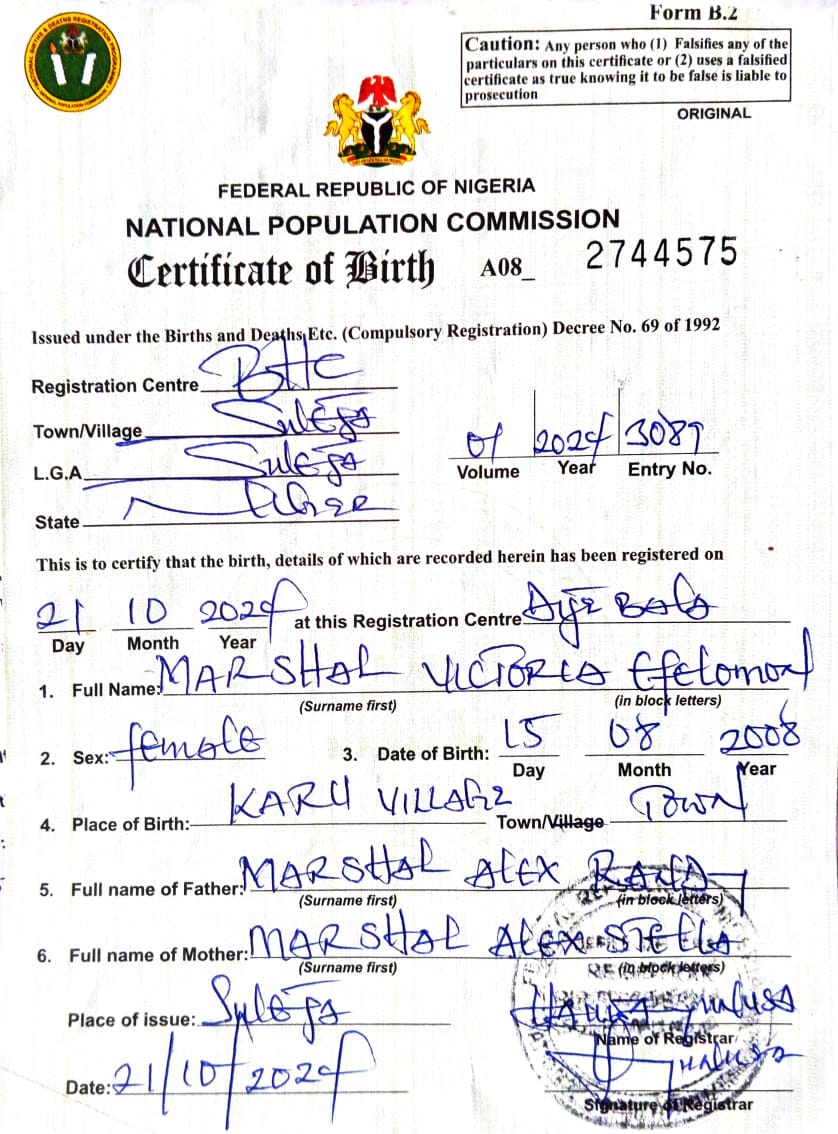 Form B.2
NATIONAL BIRTHS & DEATHS REGISTRATION PROGRAMME
NATIONAL POPULATION COMMISSION
Caution: Any person who (1) Falsifies any of the
particulars on this certificate or (2) uses a falsified
certificate as true knowing it to be false is liable to
prosecution
ORIGINAL
FEDERAL REPUBLIC OF NIGERIA
NATIONAL POPULATION COMMISSION
Certificate of Birth A08_ 2744575
Issued under the Births and Deaths, Etc. (Compulsory Registration) Decree No. 69 of 1992
Registration Centre BHC
Town/Village Suleja
L.G.A Suleja
State Niger
01 2024 3087
Volume Year Entry No.
This is to certify that the birth, details of which are recorded herein has been registered on
21 10 2024 at this Registration Centre
Day Month Year
1. Full Name: MARSHAL VICTORIA
(Surname first) (in block letters)
2. Sex: female 3. Date of Birth: 15 08 2008
Day Month Year
4. Place of Birth: KARU VILLAGE Town/Village Town
5. Full name of Father: MARSHAL ALEX
(Surname first) (in block letters)
6. Full name of Mother: MARSHAL ALEX STELLA
(Surname first) (in block letters)
Place of issue: Suleja
Name of Registrar
Date: 21/10/2024
Signature of Registrar